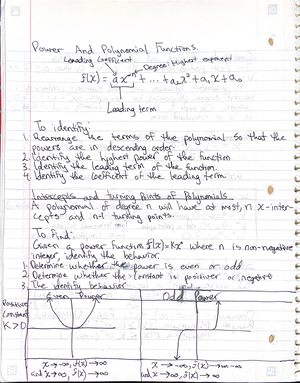 Power And Polynomial Functions.
Leading Coefficient
Degree: Highest exponent
f(x) = axⁿ + ... + a₂x² + a₁x + a₀
Leading term
To identify:
1. Rearrange the terms of the polynomial so that the
powers are in descending order
2. Identify the highest power of the function
3. Identify the leading term of the function
4. Identify the coefficient of the leading term
Intercepts and turning Points of Polynomials
A polynomial of degree n will have at most, n x-inter-
cepts and n-1 turning points.
To Find:
Given a power function f(x)=kxⁿ where n is non-negative
integer, identify the behavior.
1. Determine whether the power is even or odd
2. Determine whether the constant is positive or negative
3. The identify behavior
Even Power
Odd Power
Positive
Constant
K>0
x→-∞, f(x)→∞
and x→∞, f(x)→∞
x→-∞, f(x)→-∞
and x→∞, f(x)→∞